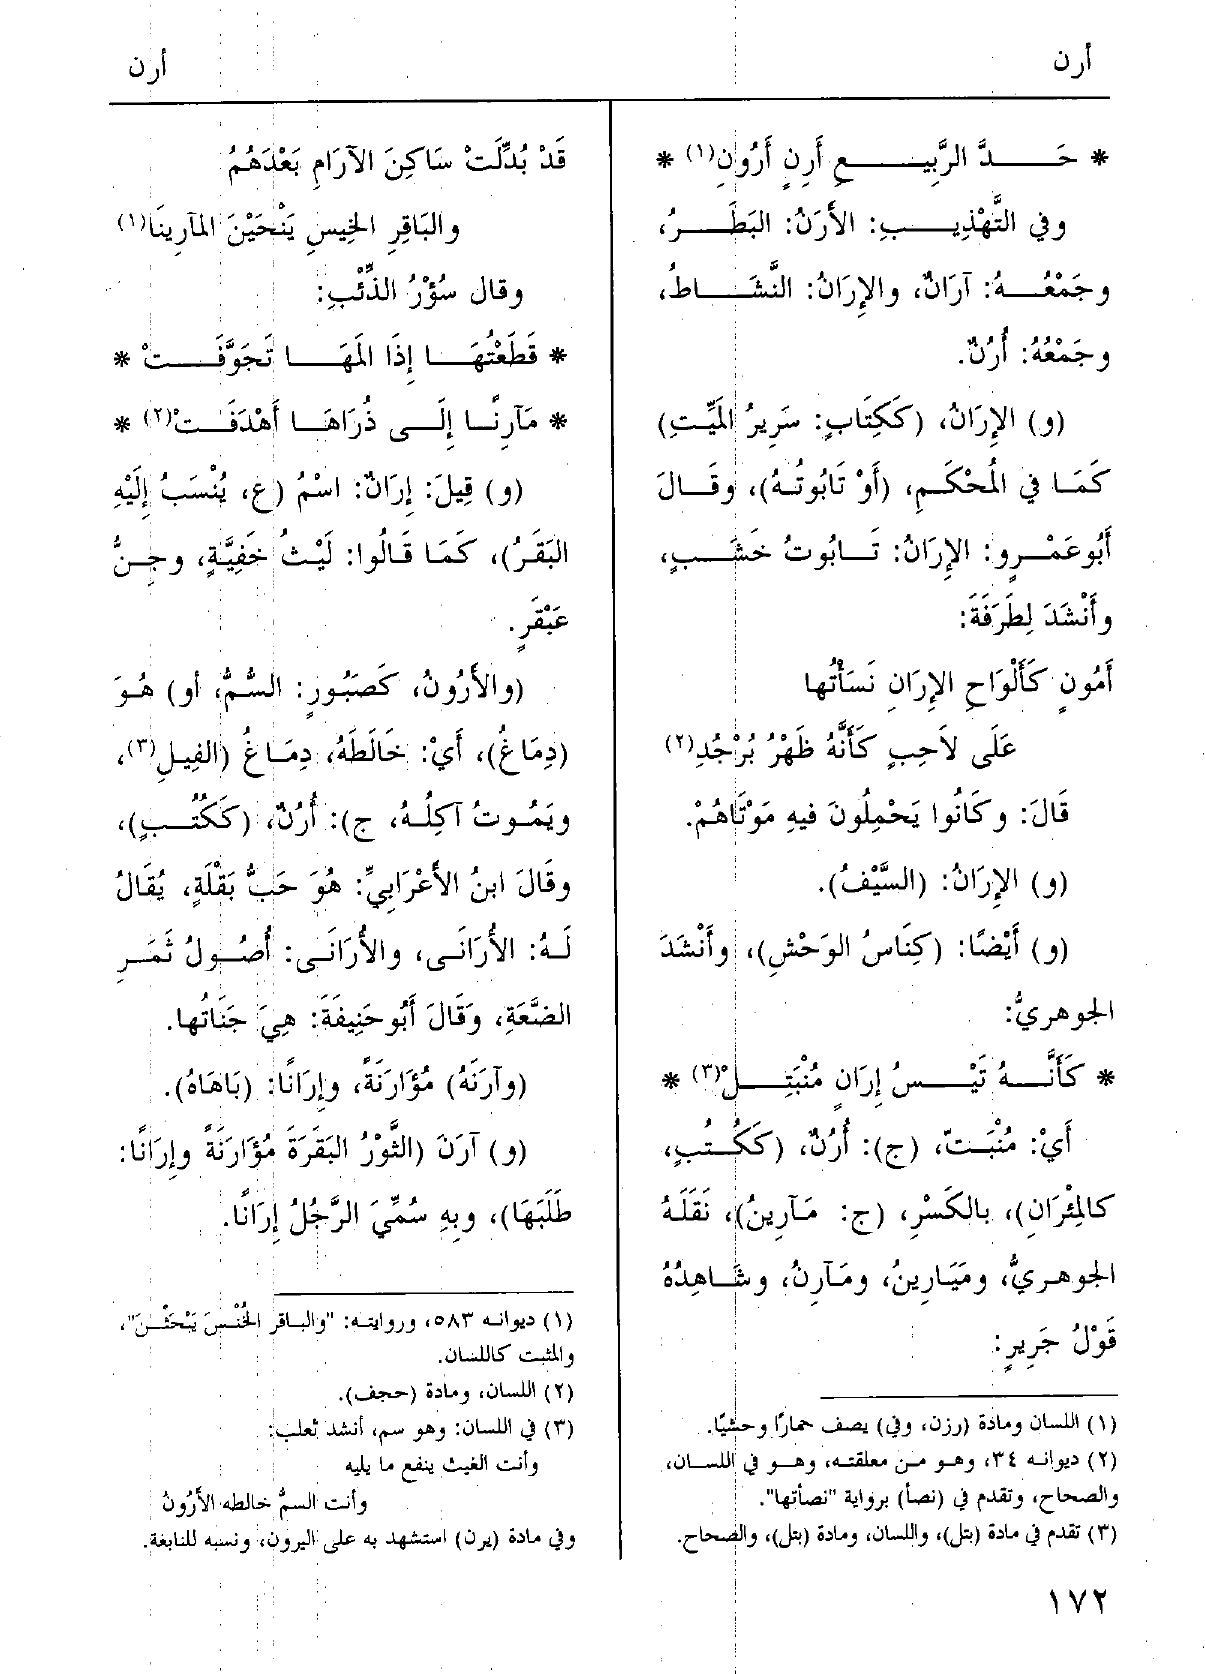 أرن
أرن
* حَـــدَّ الرَّبِيـــعِ أَرِنٍ أَرُونِ(١) *
وفي التَّهْذِيبِ: الأَرَنُ: البَطَرُ،
وجَمْعُهُ: آرَانٌ، والإِرَانُ: النَّشَاطُ،
وجَمْعُهُ: أُرُنٌ.
(و) الإِرَانُ، (كَكِتَابٍ: سَرِيرُ المَيِّتِ)
كَمَا في المُحْكَمِ، (أَوْ تَابُوتُهُ)، وقَالَ
أَبُوعَمْرٍو: الإِرَانُ: تَابُوتُ خَشَبٍ،
وأَنْشَدَ لِطَرَفَةَ:
أَمُونٍ كَأَلْوَاحِ الإِرَانِ نَسَأْتُها
عَلَى لاَحِبٍ كَأَنَّهُ ظَهْرُ بُرْجُدِ(٢)
قَالَ: وكَانُوا يَحْمِلُونَ فيهِ مَوْتَاهُمْ.
(و) الإِرَانُ: (السَّيْفُ).
(و) أَيْضًا: (كِنَاسُ الوَحْشِ)، وأَنْشَدَ
الجوهريُّ:
* كَأَنَّـــهُ تَيْـــسُ إِرَانٍ مُنْبَتِـــلْ(٣) *
أَيْ: مُنْبَتّ، (ج): أُرُنٌ، (كَكُتُبٍ،
كالمِئْرَانِ)، بالكَسْرِ، (ج: مَآرِينُ)، نَقَلَهُ
الجوهريُّ، ومَيَارِينُ، ومَآرِنُ، وشَاهِدُهُ
قَوْلُ جَرِيرٍ:
(١) اللسان ومادة (رزن، وفي) يصف حمارًا وحشيًا.
(٢) ديوانه ٣٤، وهو من معلقته، وهو في اللسان،
والصحاح، وتقدم في (نصأ) برواية "نصأتها".
(٣) تقدم في مادة (بتل)، واللسان، ومادة (بتل)، والصحاح.
قَدْ بُدِّلَتْ سَاكِنَ الآرَامِ بَعْدَهُمُ
والبَاقِرِ الخِيسِ يَنْحَيْنَ المَآرِينَا(١)
وقال سُؤْرُ الذِّئْبِ:
* قَطَعْتُهَـــا إِذَا المَهَـــا تَجَوَّفَـــتْ *
* مَآرِنًـــا إِلَـــى ذُرَاهَـــا أَهْدَفَـــتْ(٢) *
(و) قِيلَ: إِرَانٌ: اسْمُ (ع، يُنْسَبُ إِلَيْهِ
البَقَرُ)، كَمَا قَالُوا: لَيْثُ خَفِيَّةٍ، وجِنُّ
عَبْقَرٍ.
(والأَرُونُ، كَصَبُورٍ: السُّمُّ، أو) هُوَ
(دِمَاغُ)، أَيْ: خَالَطَهُ، دِمَاغُ (الفِيلِ(٣)،
ويَمُوتُ آكِلُهُ، ج): أُرُنٌ، (كَكُتُبٍ)،
وقَالَ ابنُ الأَعْرَابِيِّ: هُوَ حَبُّ بَقْلَةٍ، يُقَالُ
لَهُ: الأُرَانَى، والأُرَانَى: أُصُولُ ثَمَرِ
الضَّعَةِ، وَقَالَ أَبُوحَنِيفَةَ: هِيَ جَنَاتُها.
(وآرَنَهُ) مُؤَارَنَةً، وإِرَانًا: (بَاهَاهُ).
(و) آرَنَ (الثَّوْرُ البَقَرَةَ مُؤَارَنَةً وإِرَانًا:
طَلَبَهَا)، وبِهِ سُمِّيَ الرَّجُلُ إِرَانًا.
(١) ديوانه ٥٨٣، وروايته: "والباقر الخُنْسَ يَبْحَثْنَ"،
والمثبت كاللسان.
(٢) اللسان، ومادة (حجف).
(٣) في اللسان: وهو سم، أنشد ثعلب:
وأنت الغيث ينفع ما يليه
وأنت السمُّ خالطه الأَرُونُ
وفي مادة (يرن) استشهد به على اليرون، ونسبه للنابغة.
١٧٢